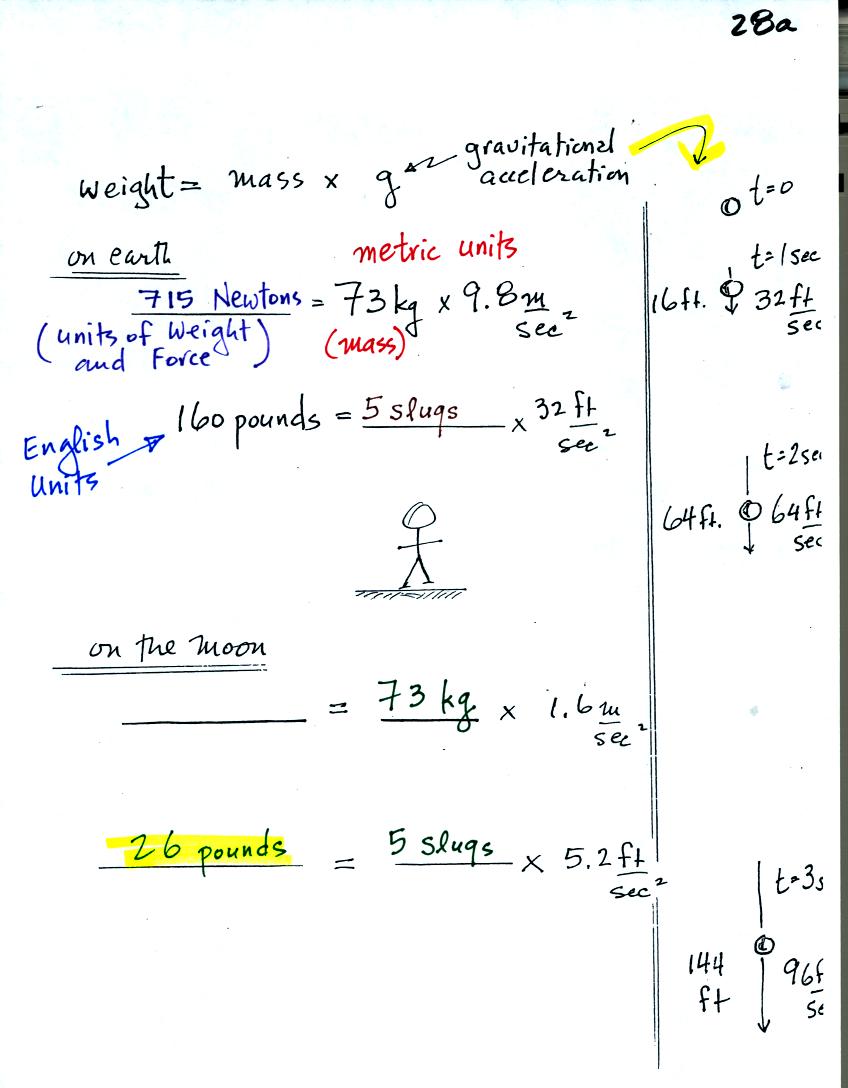 28a
weight = mass x g gravitational
acceleration
on earth
metric units
715 Newtons = 73 kg x 9.8 m
sec²
(units of Weight
and Force)
(mass)
160 pounds = 5 slugs x 32 ft
sec²
English
Units
on the moon
= 73 kg x 1.6 m
sec²
26 pounds = 5 slugs x 5.2 ft
sec²
t=0
t=1 sec
16 ft. 32 ft
sec
t=2 sec
64 ft. 64 ft
sec
t=3s
144
ft
96 f
se